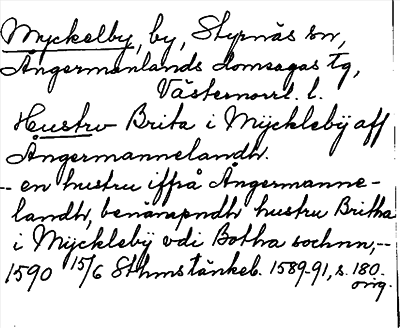 Myckelby, by, Styrnäs sn,
Ångermanlands domsagas tg,
Västernorrl. l.
Hustrv Brita i Mÿcklebÿ aff
Ångermannelandh.
-- en hustru iffrå Ångermanne-
landh, benämpndh hustru Britha
i Mÿcklebÿ vdi Botha sochnn,--
1590 15/6 Sthms tänkeb. 1589-91, s. 180.
orig.